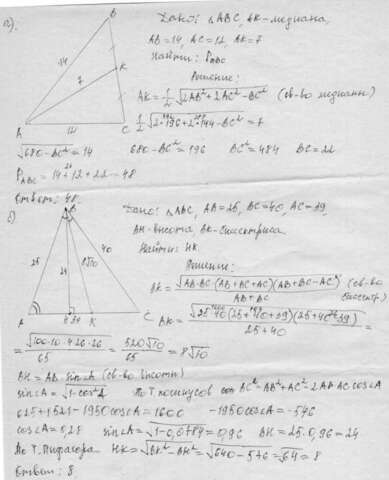 Дано: △ABC, AK-медиана,
AB=14, AC=12, AK=7
Найти: P_ABC
Решение:
AK=1/2 √(2AB²+2AC²-BC²) (св-во медианы)
1/2 √(2·196+2·144-BC²)=7
√(680-BC²)=14 680-BC²=196 BC²=484 BC=22
P_ABC=14+12+22=48
Ответ: 48.
B
14
K
7
A
12
C
Дано: △ABC, AB=25, BC=40, AC=39,
BH-высота BK-биссектриса.
Найти: HK.
Решение:
BK=√(AB·BC·(AB+BC+AC)(AB+BC-AC))/(AB+BC) (св-во биссектр)
BK=√(25·40(25+40+39)(25+40-39))/(25+40)=
=√(100·10·426·26)/65=520√10/65=8√10
B
25
24
8√10
40
A
H
K
C
BH=AB·sin∠A (св-во высоты)
sin∠A=√(1-cos²A) По т. косинусов BC²=AB²+AC²-2AB·AC cos∠A
625+1521-1950cos∠A=1600 -1950cos∠A=-546
cos∠A=0,28 sin∠A=√(1-0,0784)=0,96 BH=25·0,96=24
По т. Пифагора HK=√(BK²-BH²)=√(640-576)=√64=8
Ответ: 8.